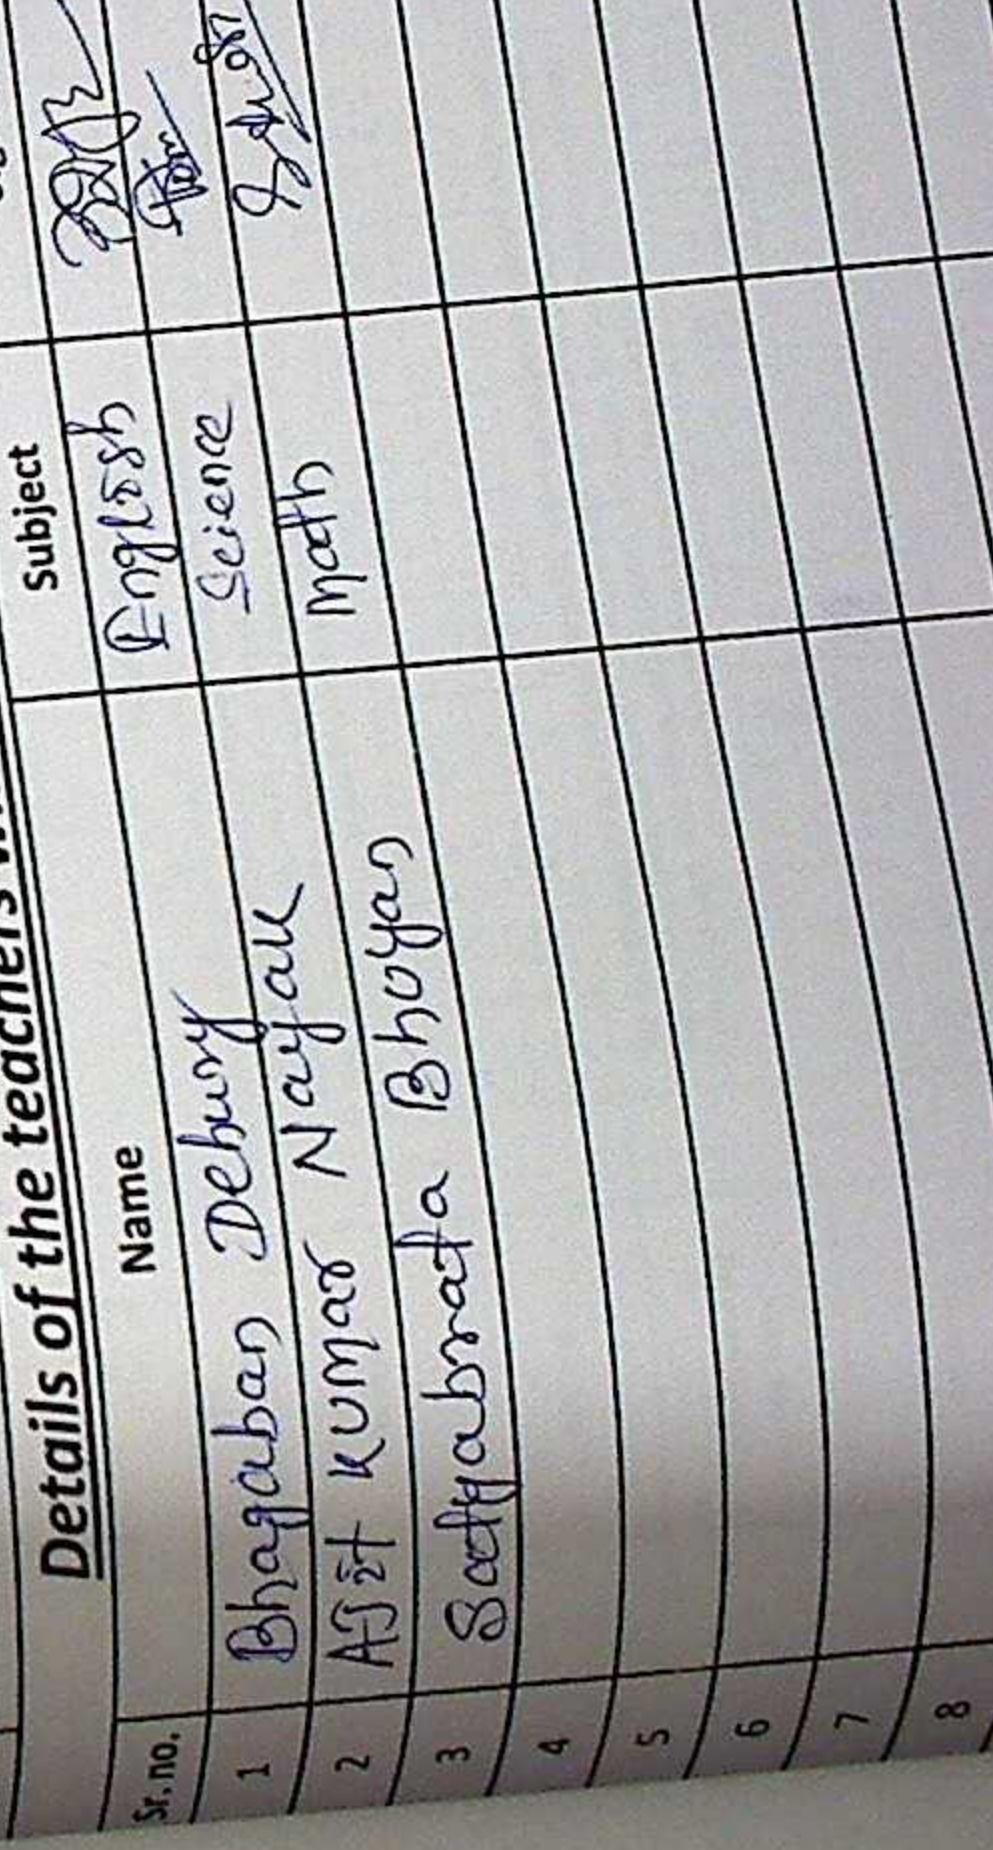 Details of the teachers
Sr. no. Name Subject
1 Bhagaban Dehury English
2 Ajit Kumar Nayak Science
3 Satyabrata Bhoyan Math
4
5
6
7
8